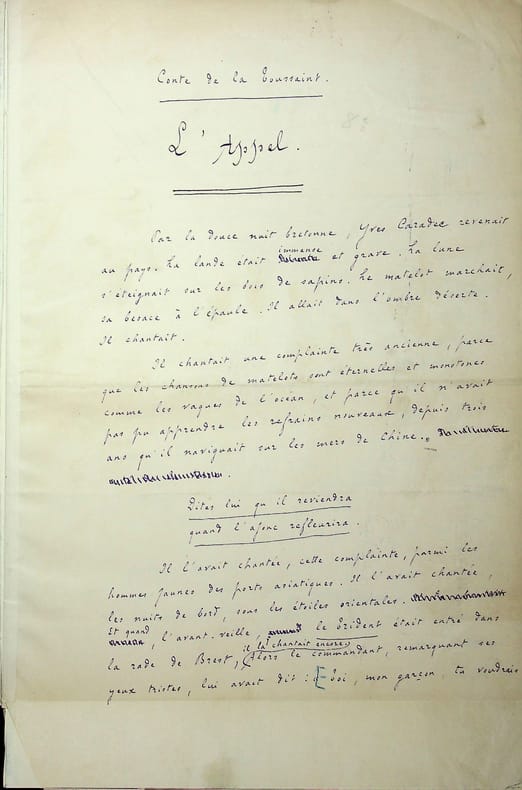 Conte de la Toussaint.
L'Appel.
Par la douce nuit bretonne, Yves Caradec revenait
immense
au pays. La lande était et grave. La lune
s'éteignait sur les bois de sapins. Le matelot marchait,
sa besace à l'épaule. Il allait dans l'ombre déserte.
Il chantait.
Il chantait une complainte très ancienne, parce
que les chansons de matelots sont éternelles et monotones
comme les vagues de l'océan, et parce qu'il n'avait
pas pu apprendre les refrains nouveaux, depuis trois
ans qu'il naviguait sur les mers de Chine.
Dites lui qu'il reviendra
quand l'ajonc refleurira.
Il l'avait chantée, cette complainte, parmi les
hommes jaunes des ports asiatiques. Il l'avait chantée,
les nuits de bord, sous les étoiles orientales.
Et quand
, l'avant-veille, le Trident était entré dans
il la chantait encore
la rade de Brest, Alors le commandant, remarquant ses
yeux tristes, lui avait dit : Toi, mon garçon, tu voudrais